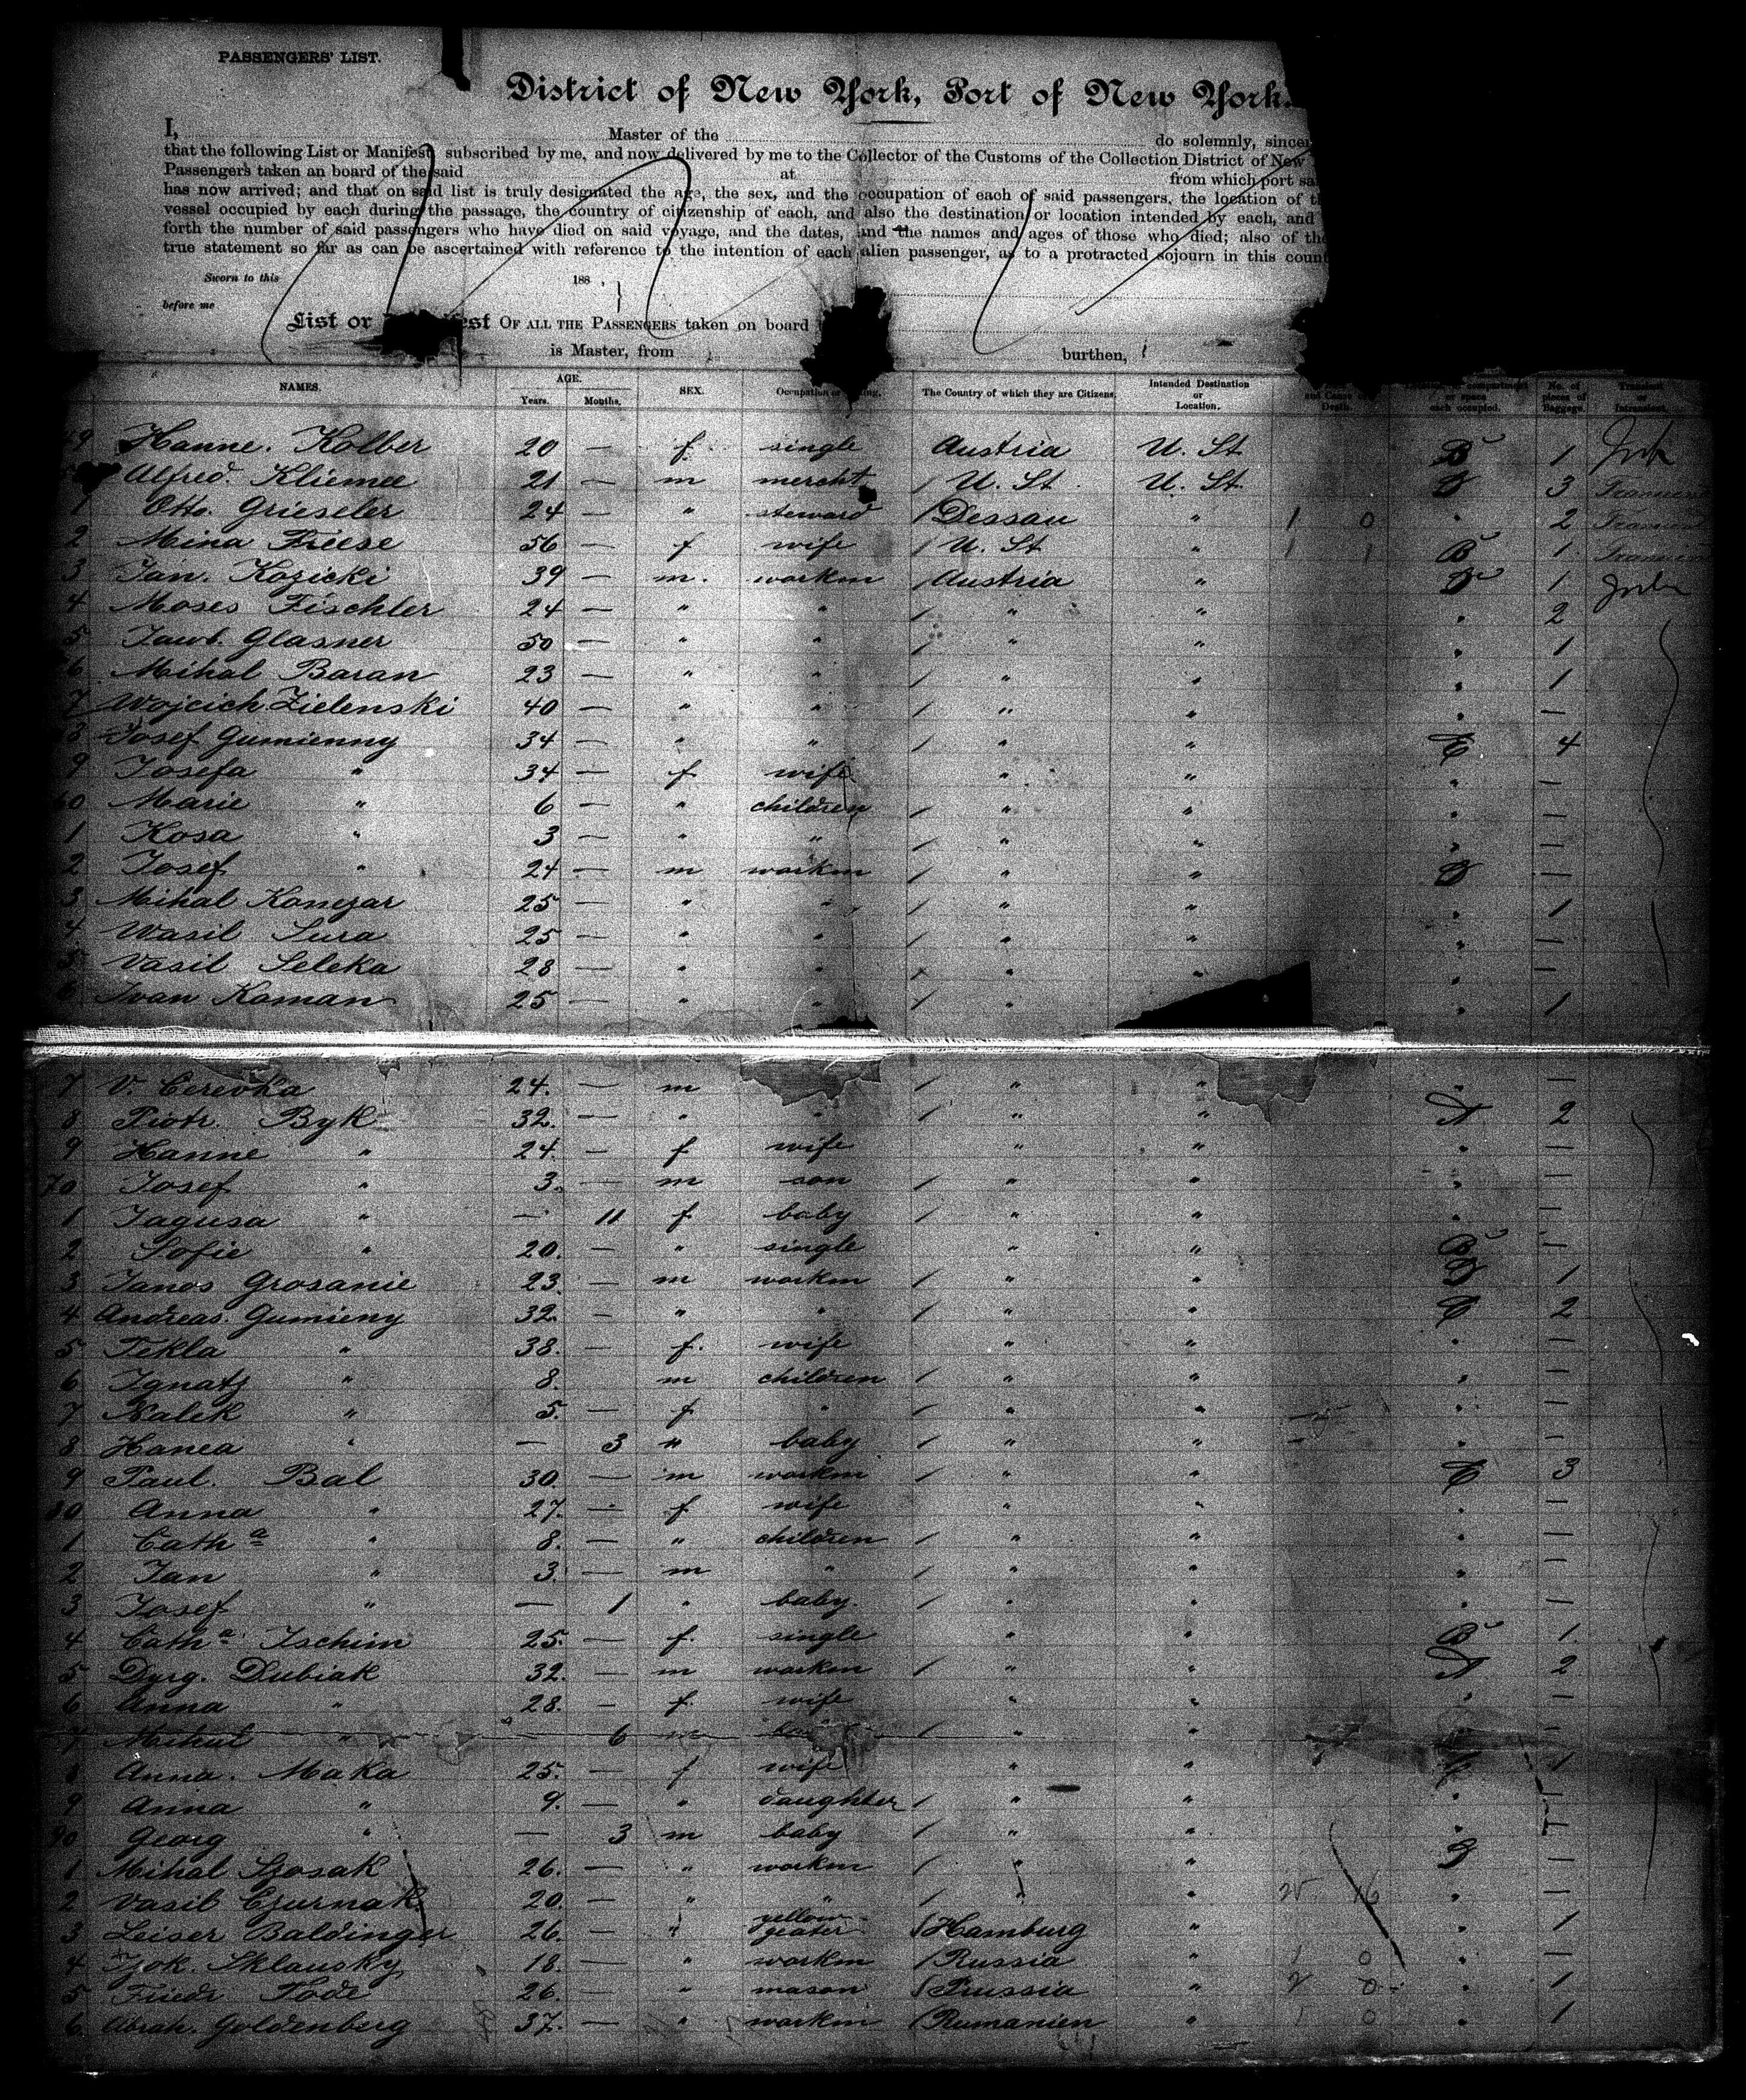 PASSENGERS' LIST.
District of New York, Port of New York.
I, Master of the do solemnly, sincer
that the following List or Manifest, subscribed by me, and now delivered by me to the Collector of the Customs of the Collection District of New
Passengers taken an board of the said at from which port sa
has now arrived; and that on said list is truly designated the age, the sex, and the occupation of each of said passengers, the location of t
vessel occupied by each during the passage, the country of citizenship of each, and also the destination or location intended by each, and
forth the number of said passengers who have died on said voyage, and the dates, and the names and ages of those who died; also of the
true statement so far as can be ascertained with reference to the intention of each alien passenger, as to a protracted sojourn in this count
Sworn to this 188 ,
before me
List or est OF ALL THE PASSENGERS taken on board
is Master, from burthen,
NAMES. AGE. Years. Months. SEX. Occupation or The Country of which they are Citizens. Intended Destination or Location. and Cause Death. compartment or space each occupied. No. of pieces of Baggage. Transient or Intransient.
9 Hanne. Kolber 20 — f. single Austria U. St B 1
Alfred. Kliemce 21 — m mercht / U. St. U. St. 3
1 Otto. Grieseler 24 — " steward / Dessau " 1 0 " 2
2 Mina Friese 56 — f wife / U. St " 1 1 B 1
3 Jan. Kozicki 39 — m. workm / Austria " 1
4 Moses Fischler 24 — " " / " " " 2
5 Glasner 50 — " " / " " " 1
6 Mihal Baran 23 — " " / " " " 1
7 Wojcich Zielenski 40 — " " / " " " —
8 Josef Gumienny 34 — " " / " " C 4
9 Josefa " 34 — f wife " " " —
60 Marie " 6 — " children / " " " —
1 Rosa " 3 — " " / " " " —
2 Josef " 24 — m workm / " " —
3 Mihal Konezar 25 — " " / " " " 1
4 Wasil Sura 25 — " " / " " " —
5 Vasil Seleka 28 — " " / " " " —
6 Ivan Koman 25 — " " / " " 1
7 V. Cerevka 24. — m / " " " —
8 Piotr. Byk 32. — " " / " " A 2
9 Hanne " 24. — f wife " " " —
70 Josef " 3. — m son / " " " —
1 Jagusa " — 11 f baby / " " " —
2 Sofie " 20. — " single " " B —
3 Janos Grosanie 23. — m workm / " " 1
4 Andreas. Gumieny 32. — " " / " " C 2
5 Tekla " 38. — f. wife " " " —
6 Ignatz " 8. m children / " " " —
7 Nalek " 5. — f " / " " " —
8 Hanea " — 3 " baby / " " " —
9 Paul. Bal 30. — m workm / " " C 3
80 Anna " 27. — f wife " " " —
1 Cath a " 8. — " children / " " " —
2 Jan " 3. — m " / " " " —
3 Josef " — 1 " baby. / " " " —
4 Cath a Ischim 25. — f. single " " B 1.
5 Dyrg. Dubiak 32. — m workm / " " A 2
6 Anna " 28. — f. wife " " " —
7 Mihal " 6 m / " " —
Anna. Maka 25. — f wife " " C 1
9 Anna " 9. — " daughter / " " "
90 Georg " — 3 m baby / " " "
1 Mihal Szosak 26. — " workm / " " —
2 Vasil Czurnak 20. — " " / " " " —
3 Leiser Baldinger 26. — " yellow geater / Hamburg " " 1
4 Sklausky 18. — " workm / Russia " 1 0 " —
5 Friedr Tode 26. — " mason / Prussia " 2 0 " 1
6. Abrah. Goldenberg 37. — " workm / Rumanien " 1 0 " 1